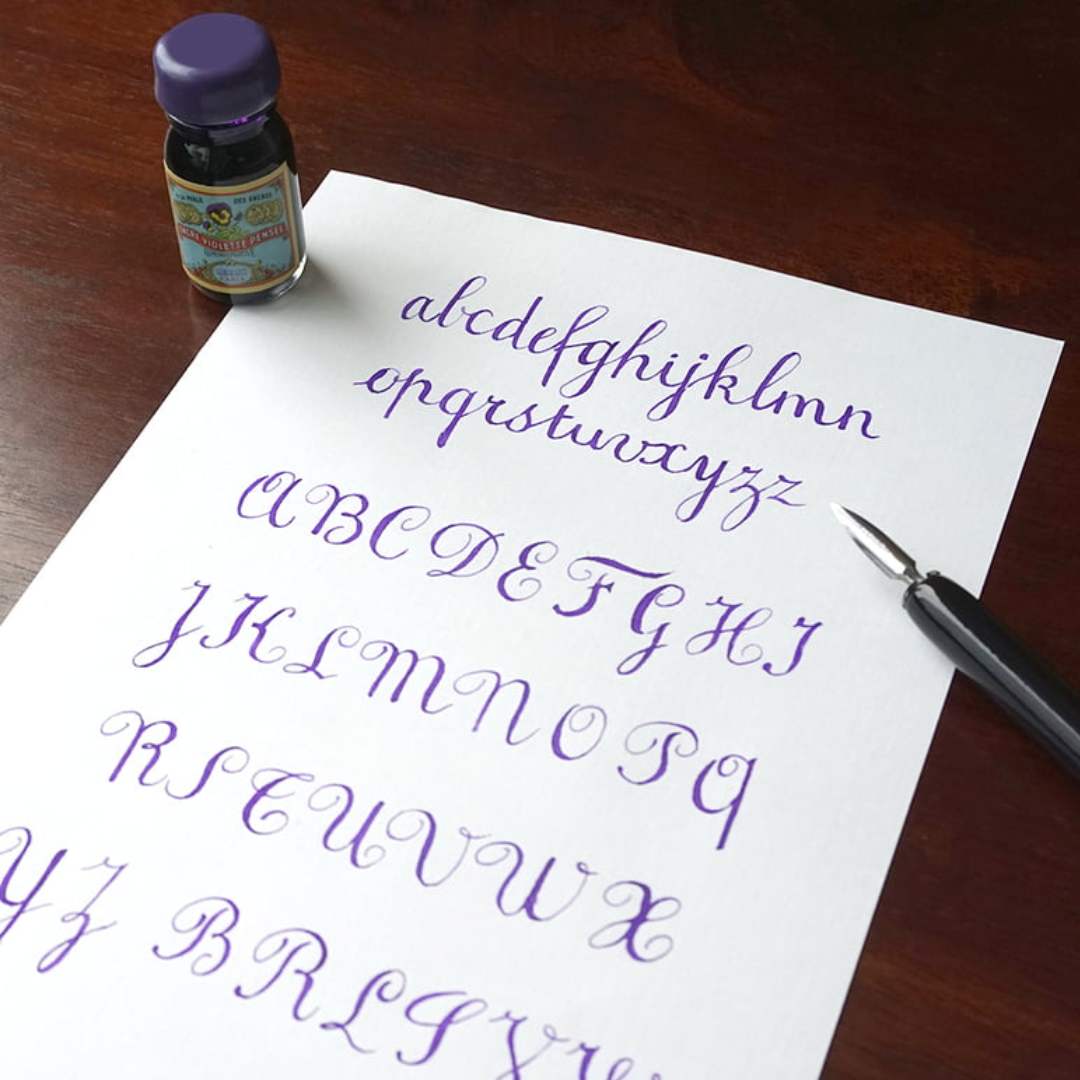 DES ENCRES
ENCRE VIOLETTE PENSÉE
PARIS
abcdefghijklmn
opqrstuvxyzz
ABCDEFGHI
JKLMNOPQ
RSTUVWX
YZ BRLS